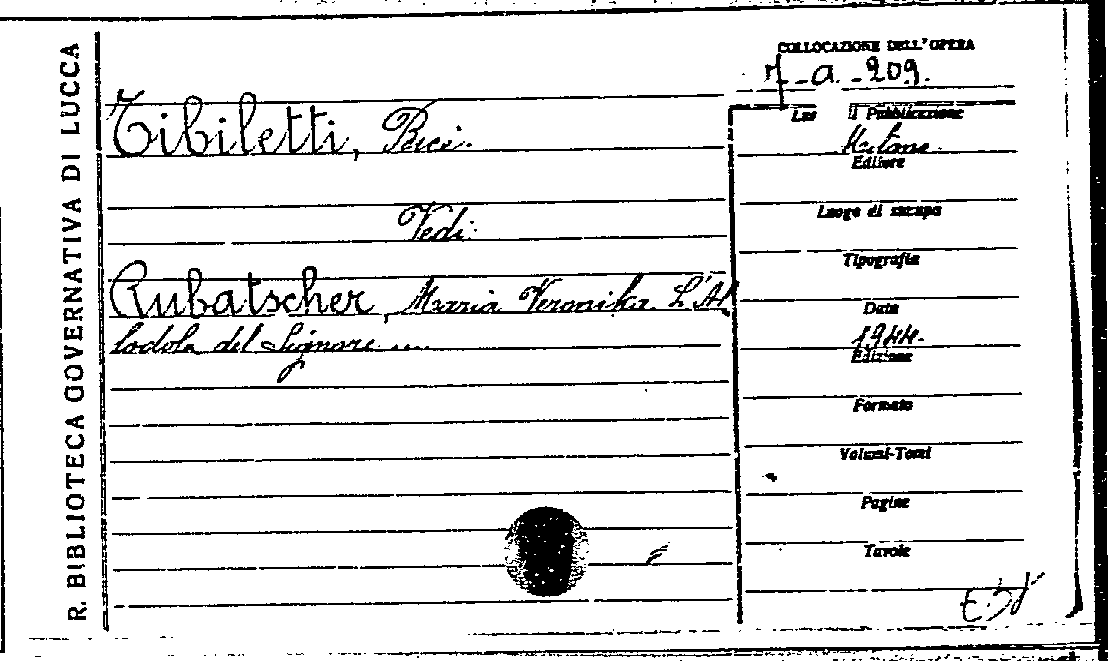 R. BIBLIOTECA GOVERNATIVA DI LUCCA
COLLOCAZIONE DELL'OPERA
a. - 209.
Tibiletti, Bici.
Vedi:
Rubatscher, Maria Veronika. L'Al
lodola del Signore....
Pubblicazione
Milano.
Editore
Luogo di stampa
Tipografia
Data
1944.
Edizione
Formato
Volumi-Tomi
Pagine
Tavole